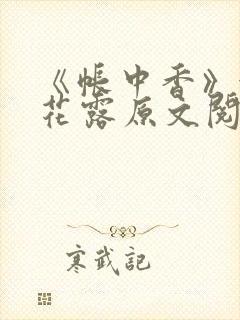 《帐中香》
花露原文阅
寒武記